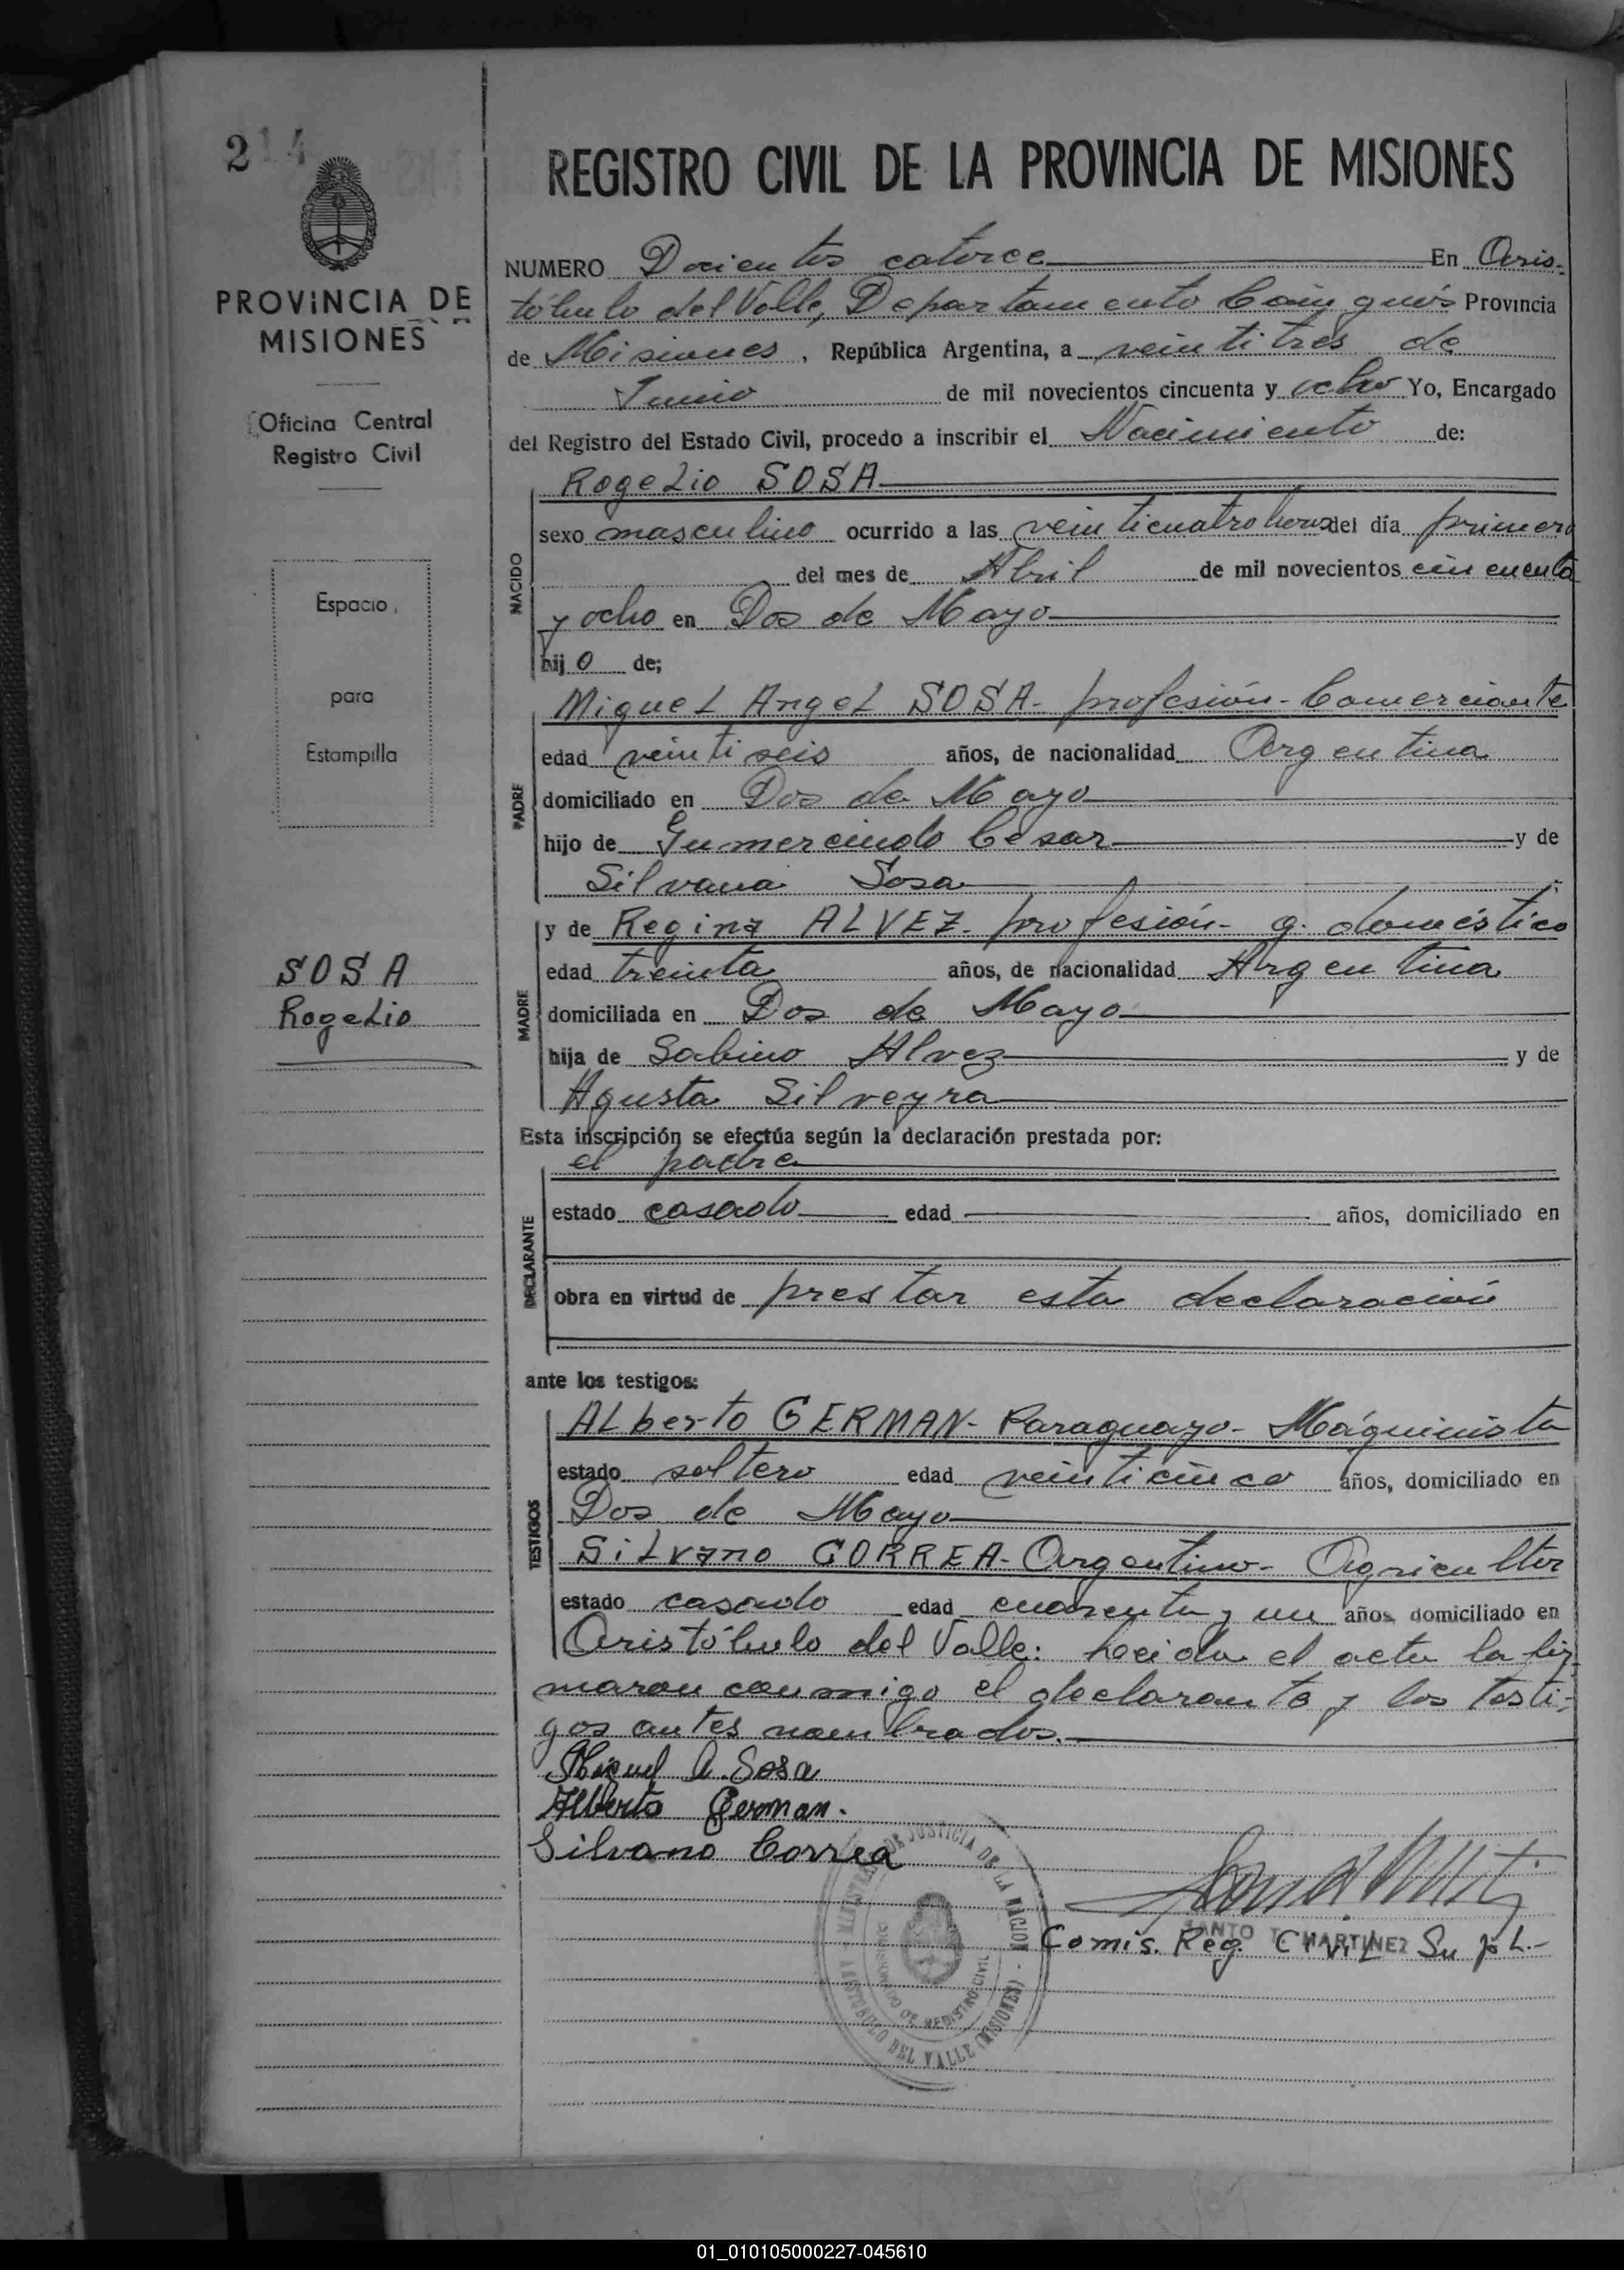 214
PROVINCIA DE
MISIONES
Oficina Central
Registro Civil
Espacio
para
Estampilla
SOSA
Rogelio
REGISTRO CIVIL DE LA PROVINCIA DE MISIONES
NUMERO Docientos catorce En Aris-
tóbulo del Valle, Departamento Cainguás Provincia
de Misiones, República Argentina, a veintitres de
Junio de mil novecientos cincuenta y ocho Yo, Encargado
del Registro del Estado Civil, procedo a inscribir el Nacimiento de:
Rogelio SOSA
NACIDO
sexo masculino ocurrido a las veinticuatro horas del día primero
del mes de Abril de mil novecientos cincuenta
y ocho en Dos de Mayo
hijo de;
PADRE
Miguel Angel SOSA- profesión- Comerciante
edad veintiseis años, de nacionalidad Argentina
domiciliado en Dos de Mayo
hijo de Gumercindo Cesar y de
Silvana Sosa;
MADRE
y de Regina ALVEZ- profesión- q. doméstico
edad treinta años, de nacionalidad Argentina
domiciliada en Dos de Mayo
hija de Sabino Alvez y de
Agusta Silveyra
Esta inscripción se efectúa según la declaración prestada por:
DECLARANTE
el padre
estado casado edad años, domiciliado en
obra en virtud de prestar esta declaración
ante los testigos:
TESTIGOS
Alberto GERMAN- Paraguayo- Máquinista
estado soltero edad veinticinco años, domiciliado en
Dos de Mayo
Silvano CORREA- Argentino- Agricultor
estado casado edad cuarenta y un años domiciliado en
Aristóbulo del Valle: leeida el acta la fir-
maron conmigo el declarante y los testi-
gos antes nombrados.-
Miguel A. Sosa
Alberto German.
Silvano Correa
MINISTERIO DE JUSTICIA DE LA NACION
REGISTRO CIVIL
ARISTOBULO DEL VALLE (MISIONES)
SANTO T. MARTINEZ
Comis. Reg. Civil Supl.-
01_010105000227-045610